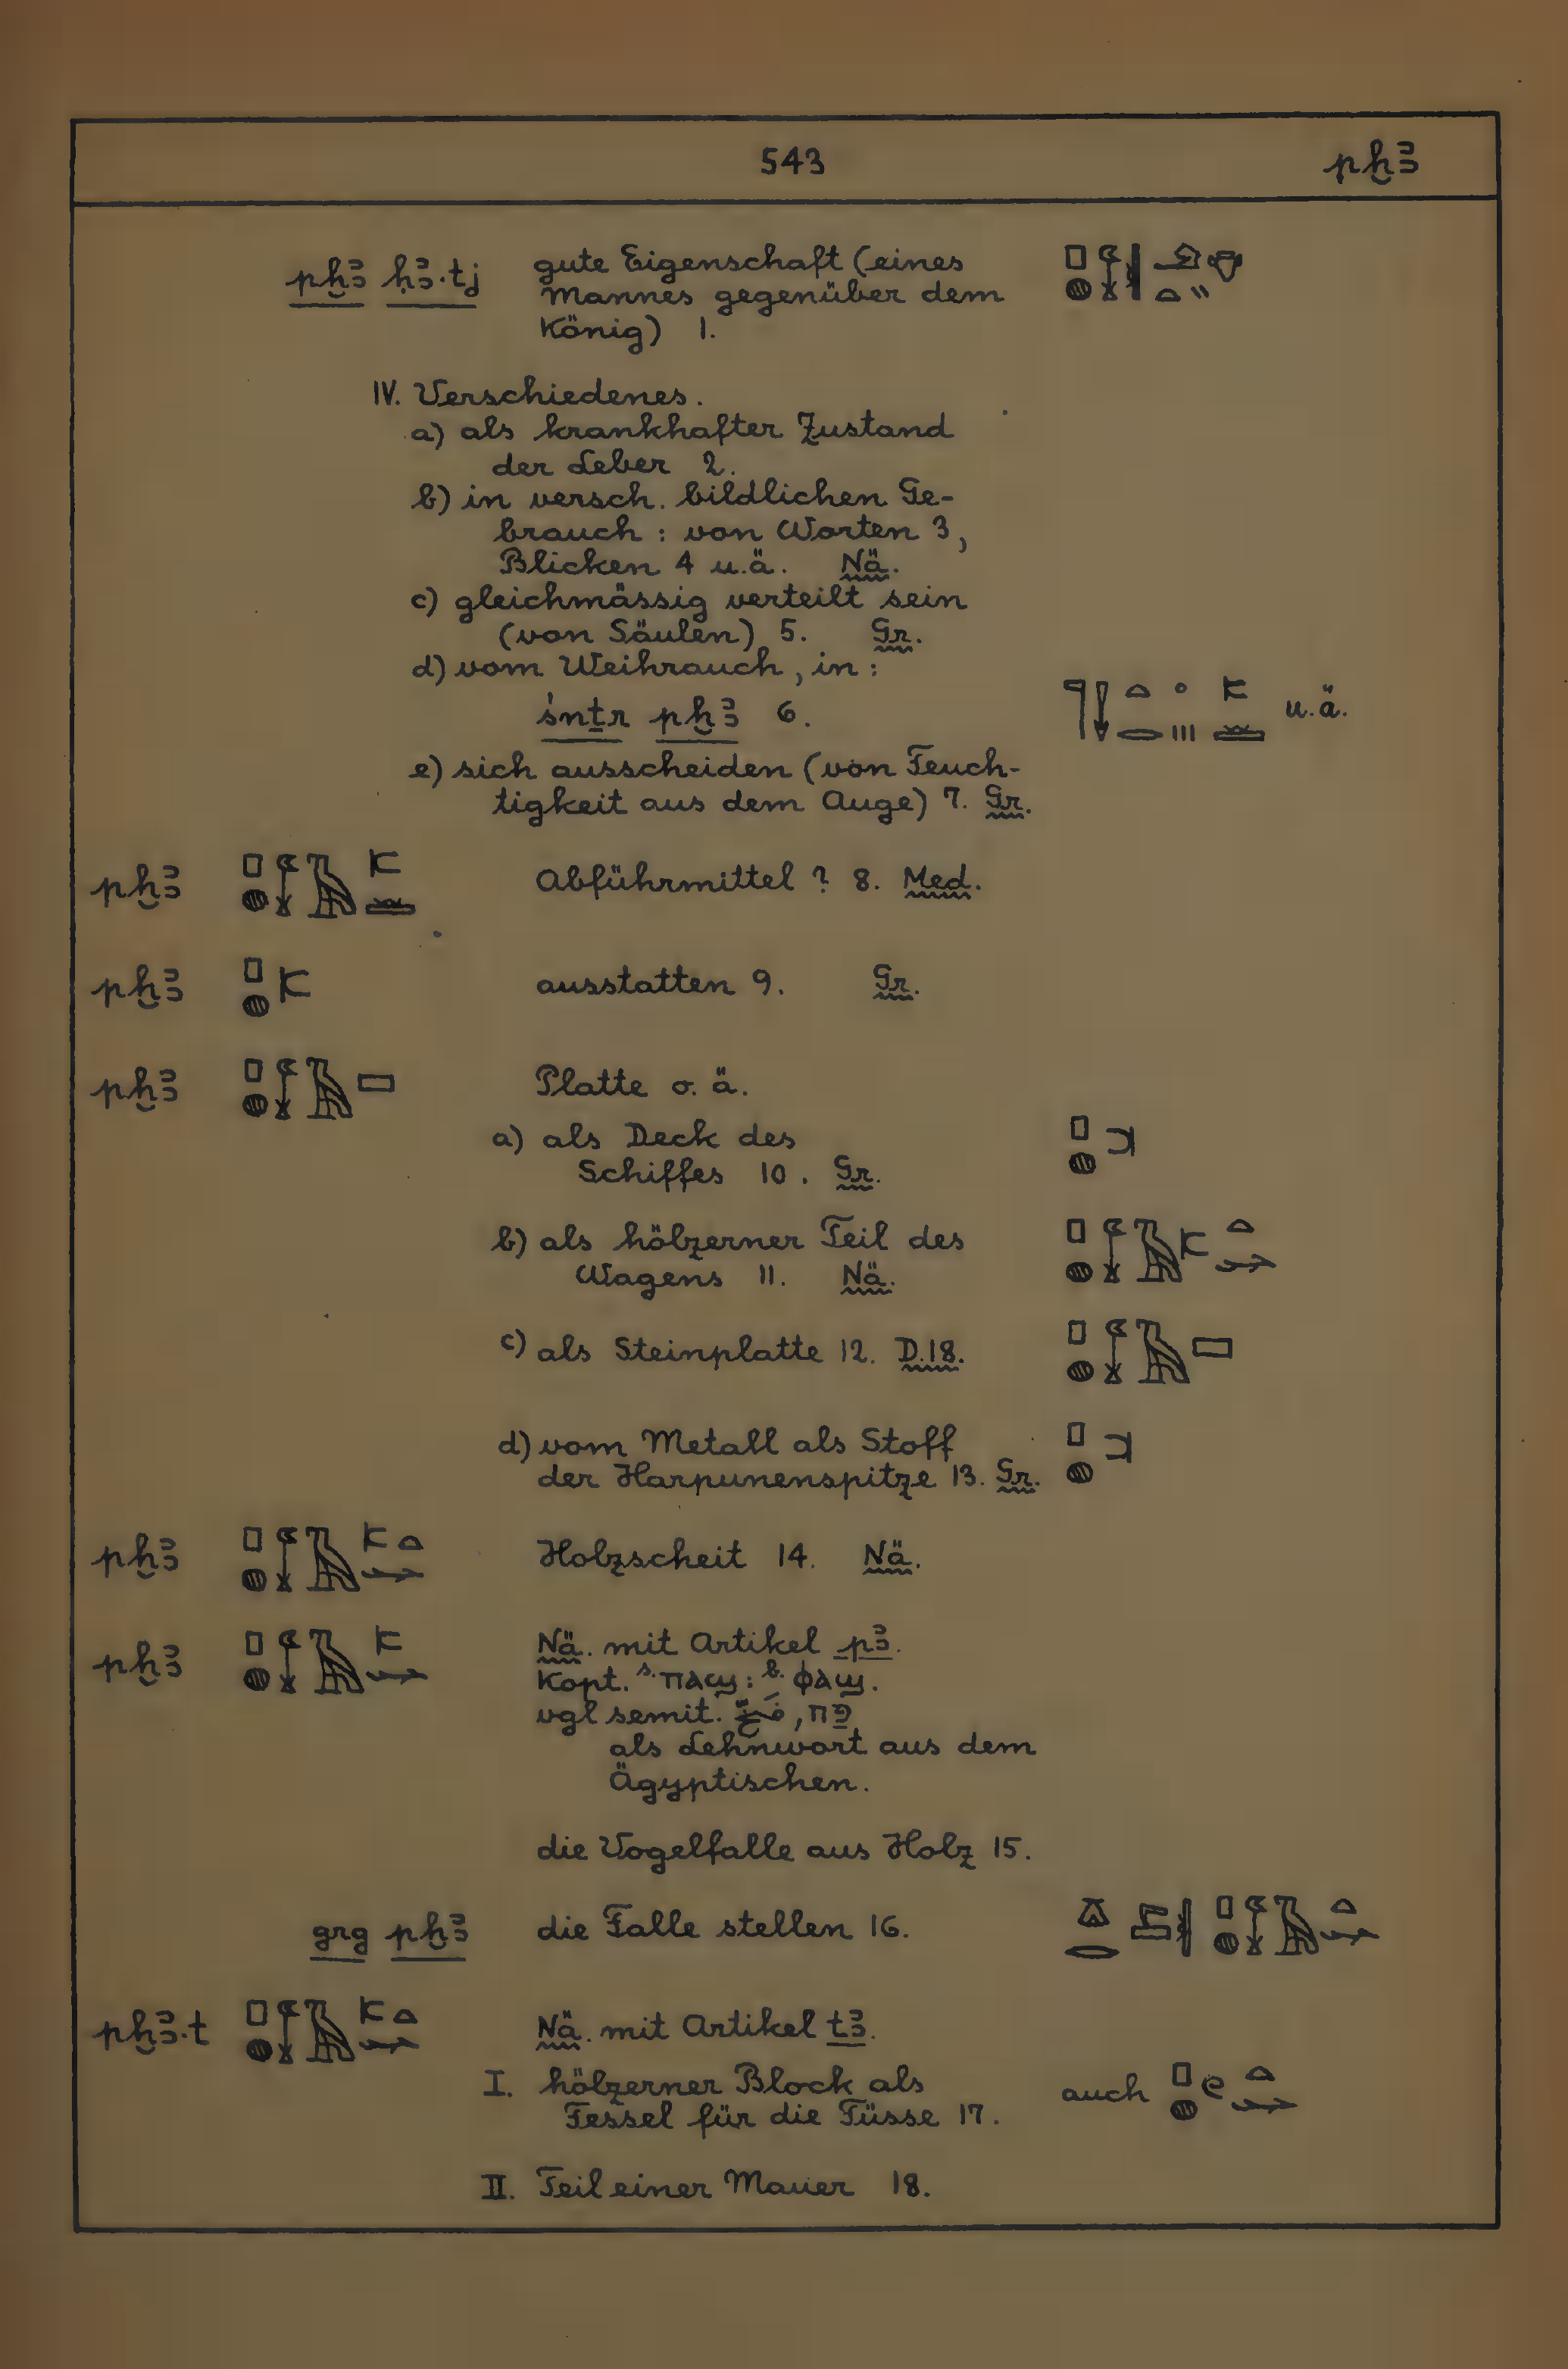 543 pḫꜣ
pḫꜣ ḥꜣ·tj gute Eigenschaft (eines
Mannes gegenüber dem
König) 1.
IV. Verschiedenes.
a) als krankhafter Zustand
der Leber 2.
b) in versch. bildlichen Ge-
brauch : von Worten 3,
Blicken 4 u.ä. Nä.
c) gleichmässig verteilt sein
(von Säulen) 5. Gr.
d) vom Weihrauch, in :
śnṯr pḫꜣ 6. u.ä.
e) sich ausscheiden (von Feuch-
tigkeit aus dem Auge) 7. Gr.
pḫꜣ Abführmittel ? 8. Med.
pḫꜣ ausstatten 9. Gr.
pḫꜣ Platte o. ä.
a) als Deck des
Schiffes 10. Gr.
b) als hölzerner Teil des
Wagens 11. Nä.
c) als Steinplatte 12. D.18.
d) vom Metall als Stoff
der Harpunenspitze 13. Gr.
pḫꜣ Holzscheit 14. Nä.
pḫꜣ Nä. mit Artikel pꜣ.
Kopt. s. ⲡⲁϣ : b. ⲫⲁϣ.
vgl semit. فخّ, פַּח
als Lehnwort aus dem
Ägyptischen.
die Vogelfalle aus Holz 15.
grg pḫꜣ die Falle stellen 16.
pḫꜣ·t Nä. mit Artikel tꜣ.
I. hölzerner Block als
Fessel für die Füsse 17. auch
II. Teil einer Mauer 18.